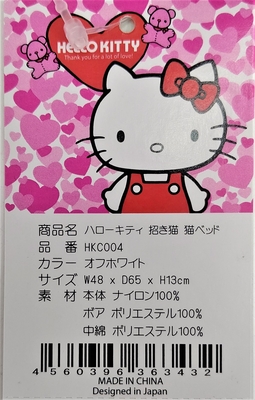 HELLO KITTY
Thank you for a lot of love!
商品名 ハローキティ 招き猫 猫ベッド
品 番 HKC004
カラー オフホワイト
サイズ W48 x D65 x H13cm
素 材 本体 ナイロン100%
ボア ポリエステル100%
中綿 ポリエステル100%
4 560396 363432
MADE IN CHINA
Designed in Japan